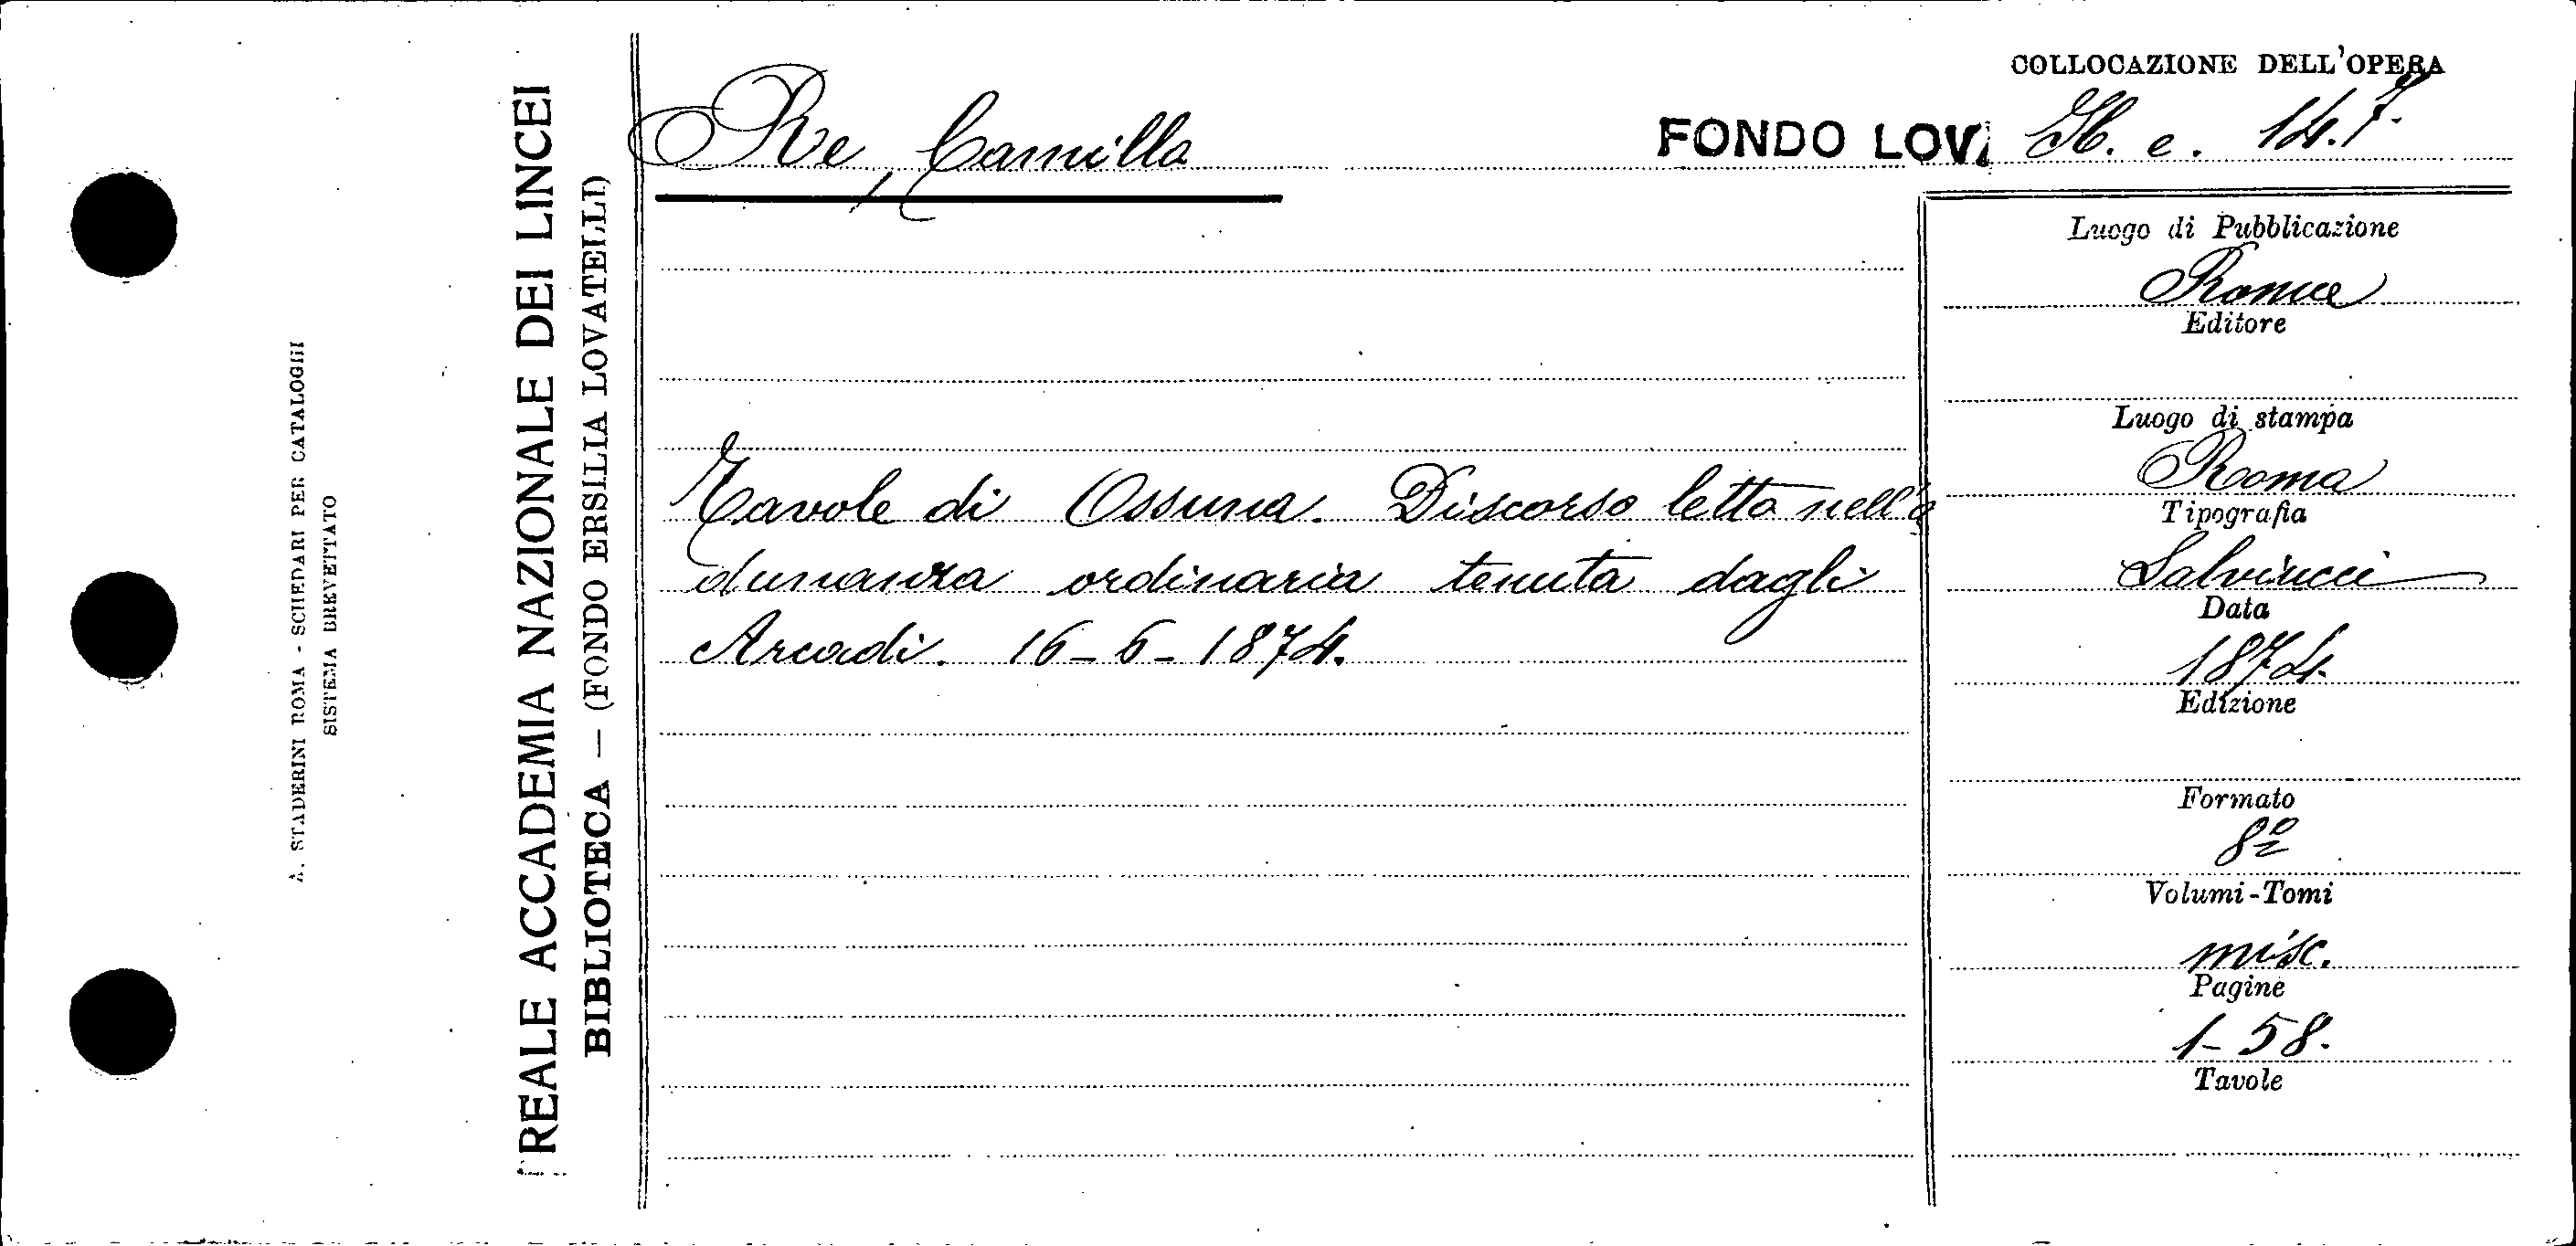 A. STADERINI ROMA - SCHEDARI PER CATALOGHI
SISTEMA BREVETTATO
REALE ACCADEMIA NAZIONALE DEI LINCEI
BIBLIOTECA — (FONDO ERSILIA LOVATELLI)
Re, Camilla
COLLOCAZIONE DELL'OPERA
FONDO LOV. 36. e. 14.7.
Tavole di Ossuna. Discorso letto nell'a
dunanza ordinaria tenuta dagli
Arcadi. 16-6-1874.
Luogo di Pubblicazione
Roma
Editore
Luogo di stampa
Roma
Tipografia
Salviucci
Data
1874.
Edizione
Formato
8º
Volumi-Tomi
misc.
Pagine
1-58.
Tavole